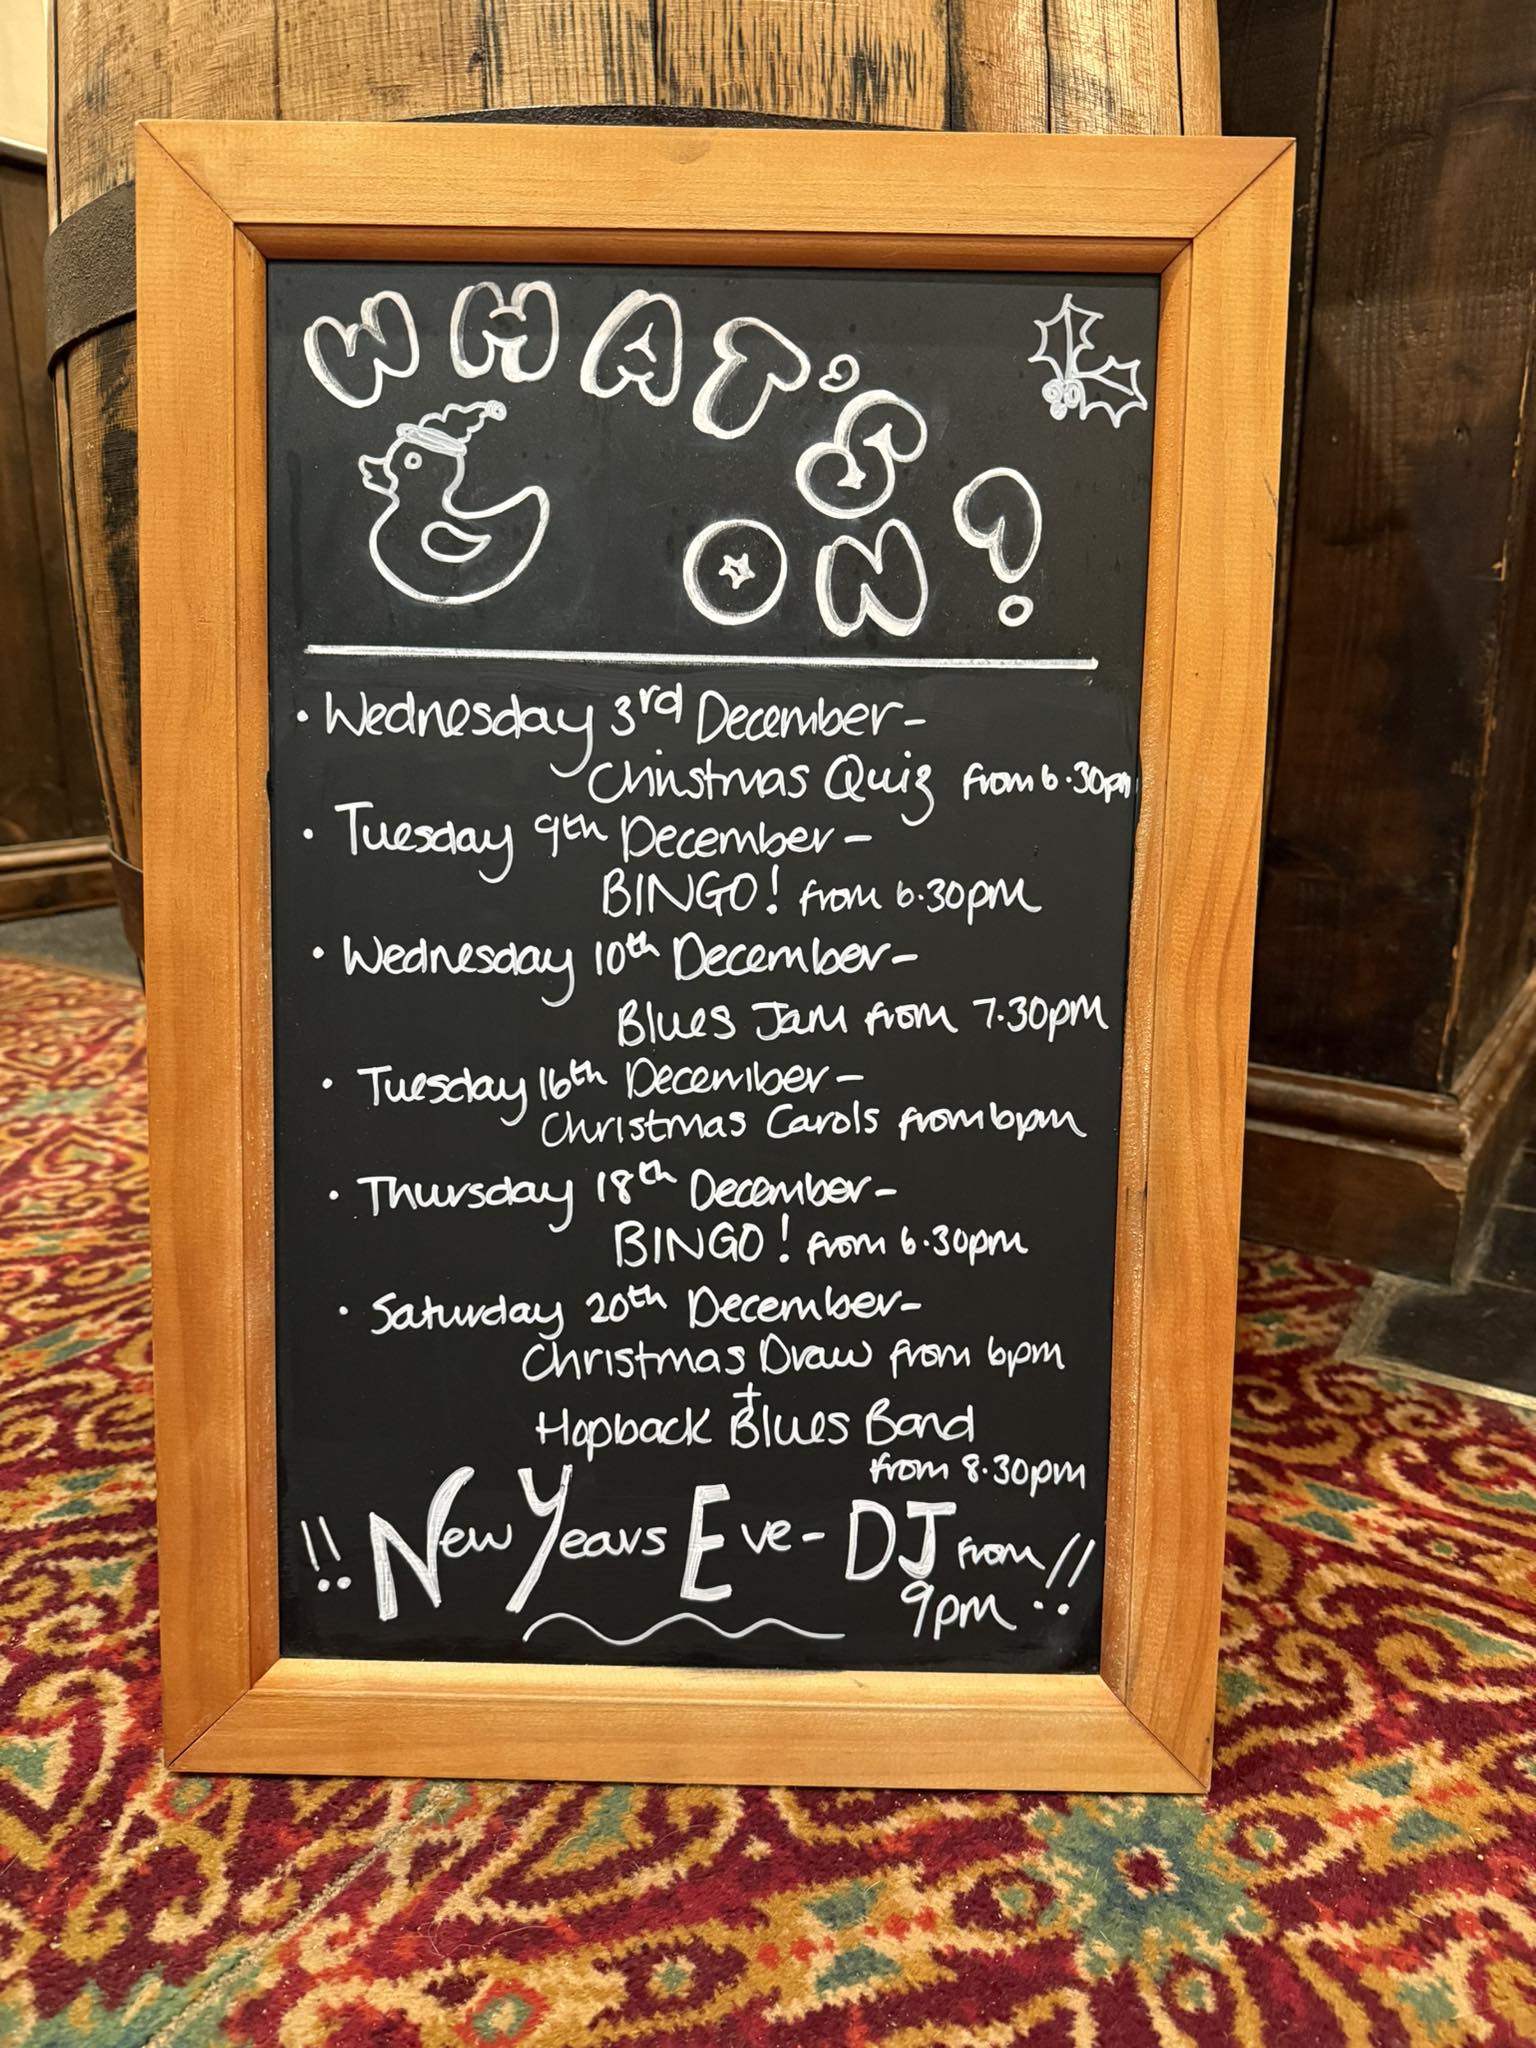 WHAT'S
ON?
• Wednesday 3rd December-
Christmas Quiz from 6.30pm
• Tuesday 9th December-
BINGO! from 6.30pm
• Wednesday 10th December-
Blues Jam from 7.30pm
• Tuesday 16th December-
Christmas Carols from 6pm
• Thursday 18th December-
BINGO! from 6.30pm
• Saturday 20th December-
Christmas Draw from 6pm
+
Hopback Blues Band
from 8.30pm
!! New Years Eve - DJ from !!
9pm